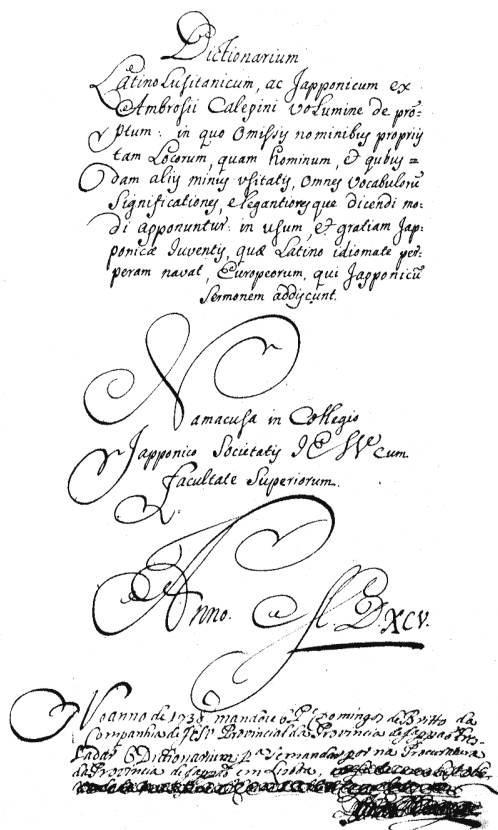 Dictionarium
Latino Lusitanicum, ac Japponicum ex
Ambrosii Calepini volumine de prō-
ptum: in quo omissis nominibus propriis
tam Locorum, quam hominum, & quibus=
dam aliis minus usitatis, omnes vocabulorũ
significationes, elegantioresque dicendi mo-
di apponuntur: in usum, & gratiam Jap-
ponicæ Iuventis, quæ Latino idiomate per-
peram navat, Europeorum, qui Japponicũ
sermonem addiscunt.
Namacusa in Collegio
Japponico Societatis IESV cum
facultate Superiorum.
Anno. M.D.XCV.
No anno de 1738 mandou o Pe. Domingos de Britto da
Companhia de Jesv Provincial da Provincia de Jappaõ tres-
ladar o Dictionarium pa. se mandar por na Procuratura
da Provincia de Jappaõ em Lisboa,